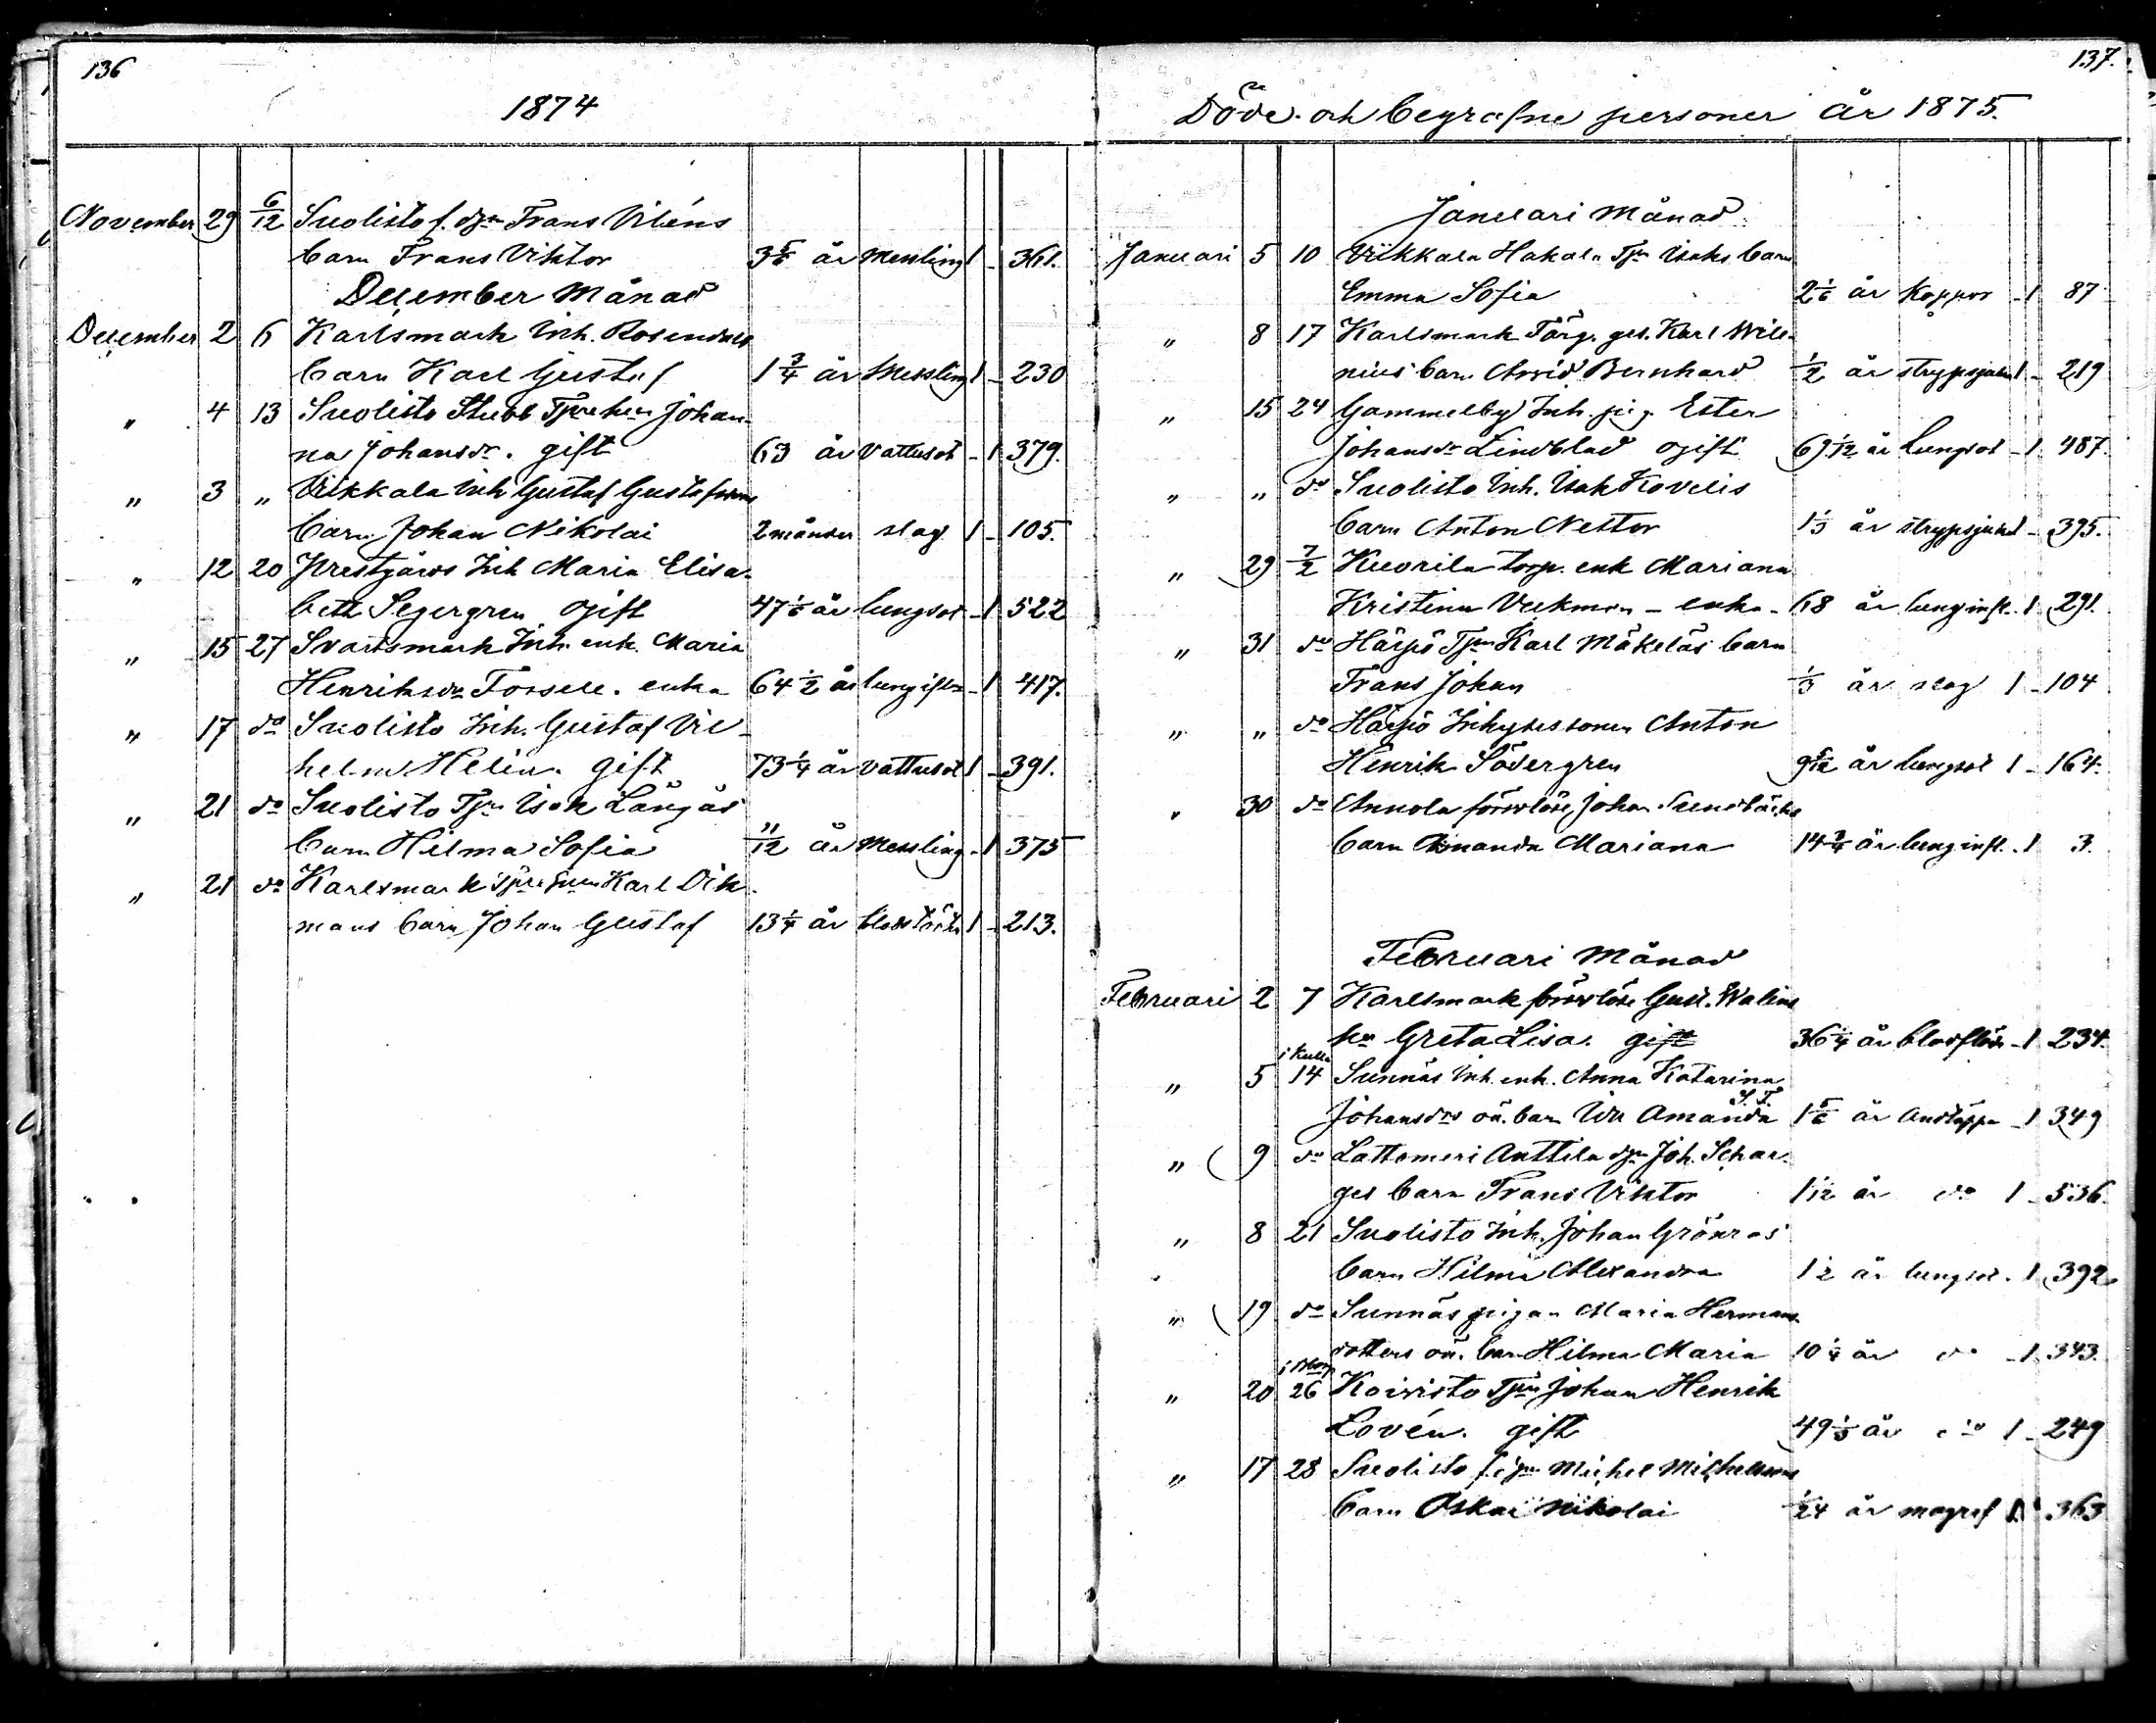 136
1874
November 29 6/12 Suolisto f. dgn Frans Viléns
barn Frans Viktor 3 5/6 år Messling 1 - 361.
December Månad
December 2 6 Karlsmark Inh. Rosendals
barn Karl Gustaf 1 3/4 år Messling 1 - 230
" 4 13 Suolisto Stubb Johan-
na Johansdr. gift 63 år Vattusot - 1 379.
" 3 " Viikkala Inh Gustaf Gustafssons
barn Johan Nikolai 2 månder slag 1 - 105.
" 12 20 Prestgårds Inh Maria Elisa-
beth Segergren ogift 47 1/6 år lungsot - 1 522
" 15 27 Svartsmark Inh. enk. Maria
Henriksdr Forsell. enka 64 1/2 år - 1 417.
" 17 do Suolisto Inh. Gustaf Vil-
helm Helin. gift 73 1/4 år Vattusot 1 - 391.
" 21 do Suolisto Tjn Isak Långås
barn Hilma Sofia 11/12 år Messling - 1 375
" 21 do Karlsmark Karl Dik-
mans barn Johan Gustaf 13 1/4 år 1 - 213.
137.
Döde och begrafne personer år 1875.
Januari Månad
Januari 5 10 Viikkala Hakala Tjn Isaks barn
Emma Sofia 2 1/6 år Koppor - 1 87
" 8 17 Karlsmark Färg. ges. Karl Wile-
nius barn Arvid Bernhard 1/2 år strypsjuka 1 - 219
" 15 24 Gammelby Inh. pig. Ester
Johansdr Lindblad ogift 69 1/12 år Lungsot - 1 487.
" " do Suolisto Inh. Isak Kovelis
barn Anton Nestor 1 1/3 år strypsjuka 1 - 395.
" 29 7/2 Kuorila torp. enk Mariana
Kristina Vikman - enka - 68 år lunginfl. 1 291.
" 31 do Härpö Tjn Karl Mäkeläs barn
Frans Johan 1/3 år slag 1 - 104
" " do Härpö Inhysessonen Anton
Henrik Södergren 9 5/12 år lungsot 1 - 164.
" 30 do Annola försvarslöse Johan Sundbäcks
barn Amanda Mariana 14 3/4 år lunginfl. 1 3.
Februari Månad
Februari 2 7 Karlsmark Gust. Walins
hu Greta Lisa. gift 36 1/4 år blodflöde - 1 234.
i Kulla
" 5 14 Sunnäs Inh. enk. Anna Katarina
Johansdrs oä. barn Ida Amanda 1 5/6 år Andtäppa - 1 349
" 9 do Lattomeri Anttila dgn Joh. Schar-
ges barn Frans Viktor 1 1/12 år do 1 - 536.
" 8 21 Suolisto Inh. Johan Grönroos
barn Hilma Alexandra 1 1/2 år lungsot. 1 392.
" 19 do Sunnäs pigan Maria Hermans-
dotters oä. barn Hilma Maria 10 1/4 år do - 1 343.
" 20 26 Koivisto Tjn Johan Henrik
Lovén. gift 49 1/3 år do 1 - 249
" 17 28 Suolisto Michel Michelssons
barn Oskar Nikolai 1/24 år magref 1 363